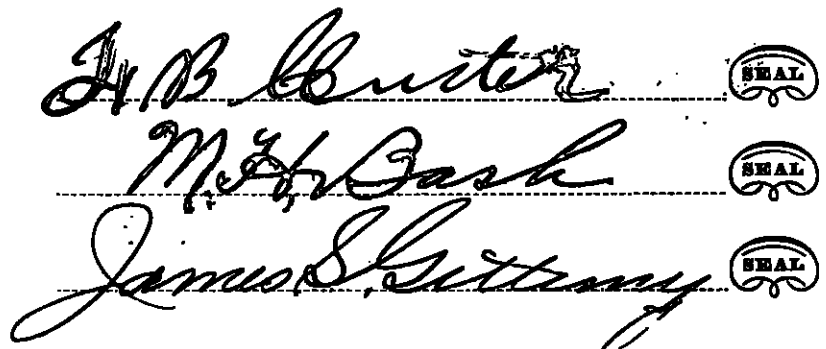 H B Custer SEAL
M. H. Bash SEAL
James S. Gettemy SEAL